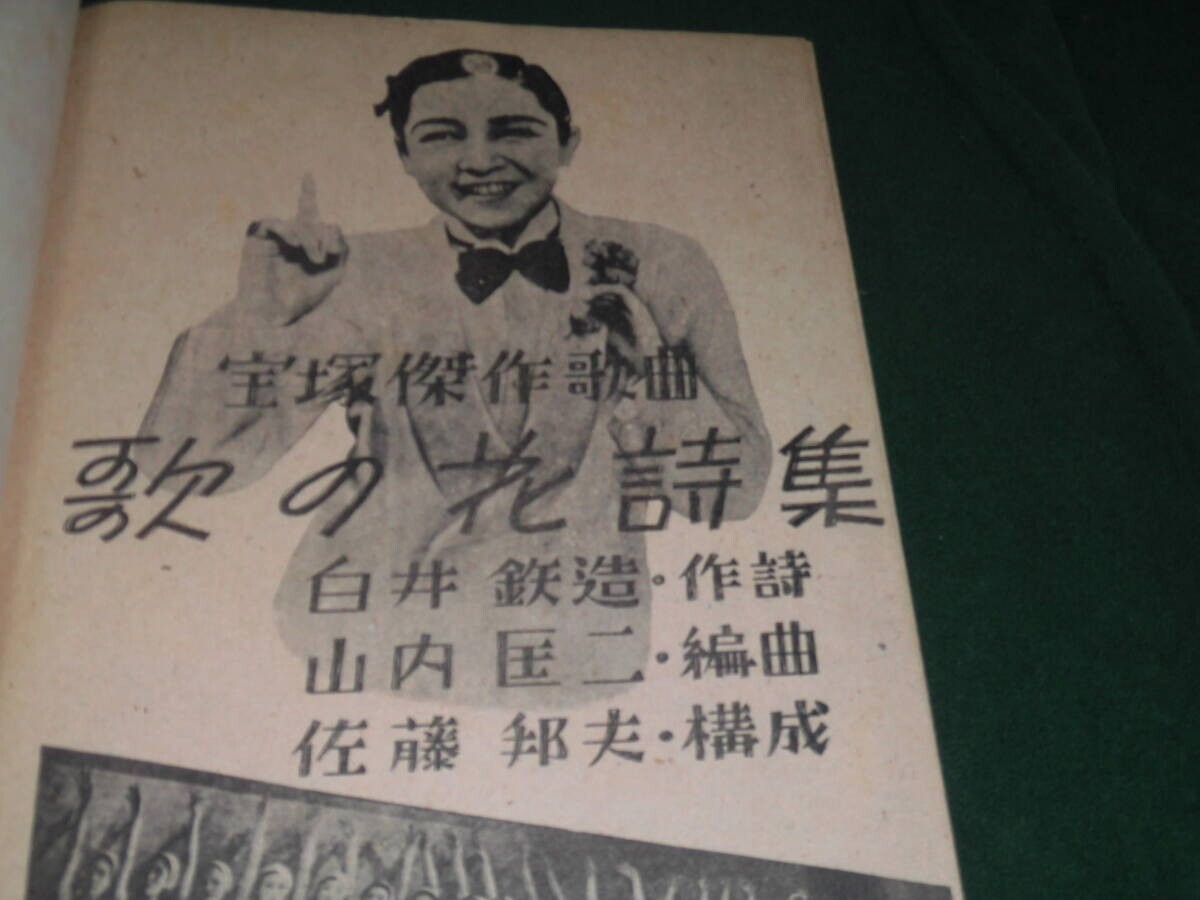 宝塚傑作歌曲
歌の花詩集
白井 鉄造・作詩
山内 匡二・編曲
佐藤 邦夫・構成